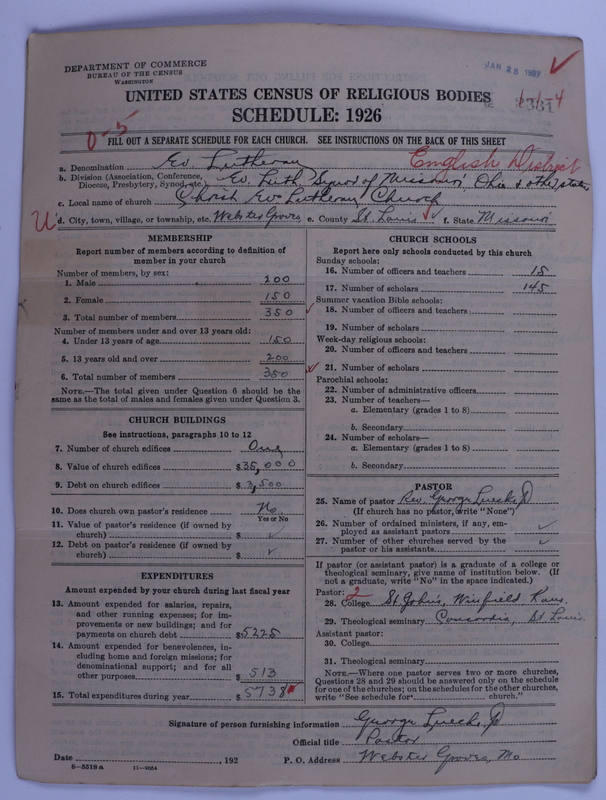 DEPARTMENT OF COMMERCE
BUREAU OF THE CENSUS
WASHINGTON
JAN 28 1927
UNITED STATES CENSUS OF RELIGIOUS BODIES
SCHEDULE: 1926
0-5
FILL OUT A SEPARATE SCHEDULE FOR EACH CHURCH. SEE INSTRUCTIONS ON THE BACK OF THIS SHEET
a. Denomination Ev. Lutheran English District
b. Division (Association, Conference, Diocese, Presbytery, Synod, etc.) Ev. Luth. Synod of Missouri, Ohio & other states
c. Local name of church Christ Ev Lutheran Church
U d. City, town, village, or township, etc. Webster Groves e. County St. Louis f. State Missouri
MEMBERSHIP
Report number of members according to definition of
member in your church
Number of members, by sex:
1. Male 200
2. Female 150
3. Total number of members 350
Number of members under and over 13 years old:
4. Under 13 years of age 150
5. 13 years old and over 200
6. Total number of members 350
NOTE.—The total given under Question 6 should be the
same as the total of males and females given under Question 3.
CHURCH BUILDINGS
See instructions, paragraphs 10 to 12
7. Number of church edifices One
8. Value of church edifices $35,000
9. Debt on church edifices $3,500
10. Does church own pastor's residence No
Yes or No
11. Value of pastor's residence (if owned by
church) $ ✓
12. Debt on pastor's residence (if owned by
church) $ ✓
EXPENDITURES
Amount expended by your church during last fiscal year
13. Amount expended for salaries, repairs,
and other running expenses; for im-
provements or new buildings; and for
payments on church debt $5225
14. Amount expended for benevolences, in-
cluding home and foreign missions; for
denominational support; and for all
other purposes $513
15. Total expenditures during year $5738
CHURCH SCHOOLS
Report here only schools conducted by this church
Sunday schools:
16. Number of officers and teachers 15
17. Number of scholars 145
Summer vacation Bible schools:
18. Number of officers and teachers
19. Number of scholars
Week-day religious schools:
20. Number of officers and teachers
21. Number of scholars
Parochial schools:
22. Number of administrative officers
23. Number of teachers—
a. Elementary (grades 1 to 8)
b. Secondary
24. Number of scholars—
a. Elementary (grades 1 to 8)
b. Secondary
PASTOR
25. Name of pastor Rev. George
(If church has no pastor, write "None")
26. Number of ordained ministers, if any, em-
ployed as assistant pastors ✓
27. Number of other churches served by the
pastor or his assistants ✓
If pastor (or assistant pastor) is a graduate of a college or
theological seminary, give name of institution below. (If
not a graduate, write "No" in the space indicated.)
Pastor: 2
28. College St. John's, Winfield Kans.
29. Theological seminary Concordia, St. Louis
Assistant pastor:
30. College
31. Theological seminary
NOTE.—Where one pastor serves two or more churches,
Questions 28 and 29 should be answered only on the schedule
for one of the churches; on the schedules for the other churches,
write "See schedule for church."
Signature of person furnishing information George
Official title Pastor
Date , 192 P. O. Address Webster Groves, Mo
8-5318 a 11-9054